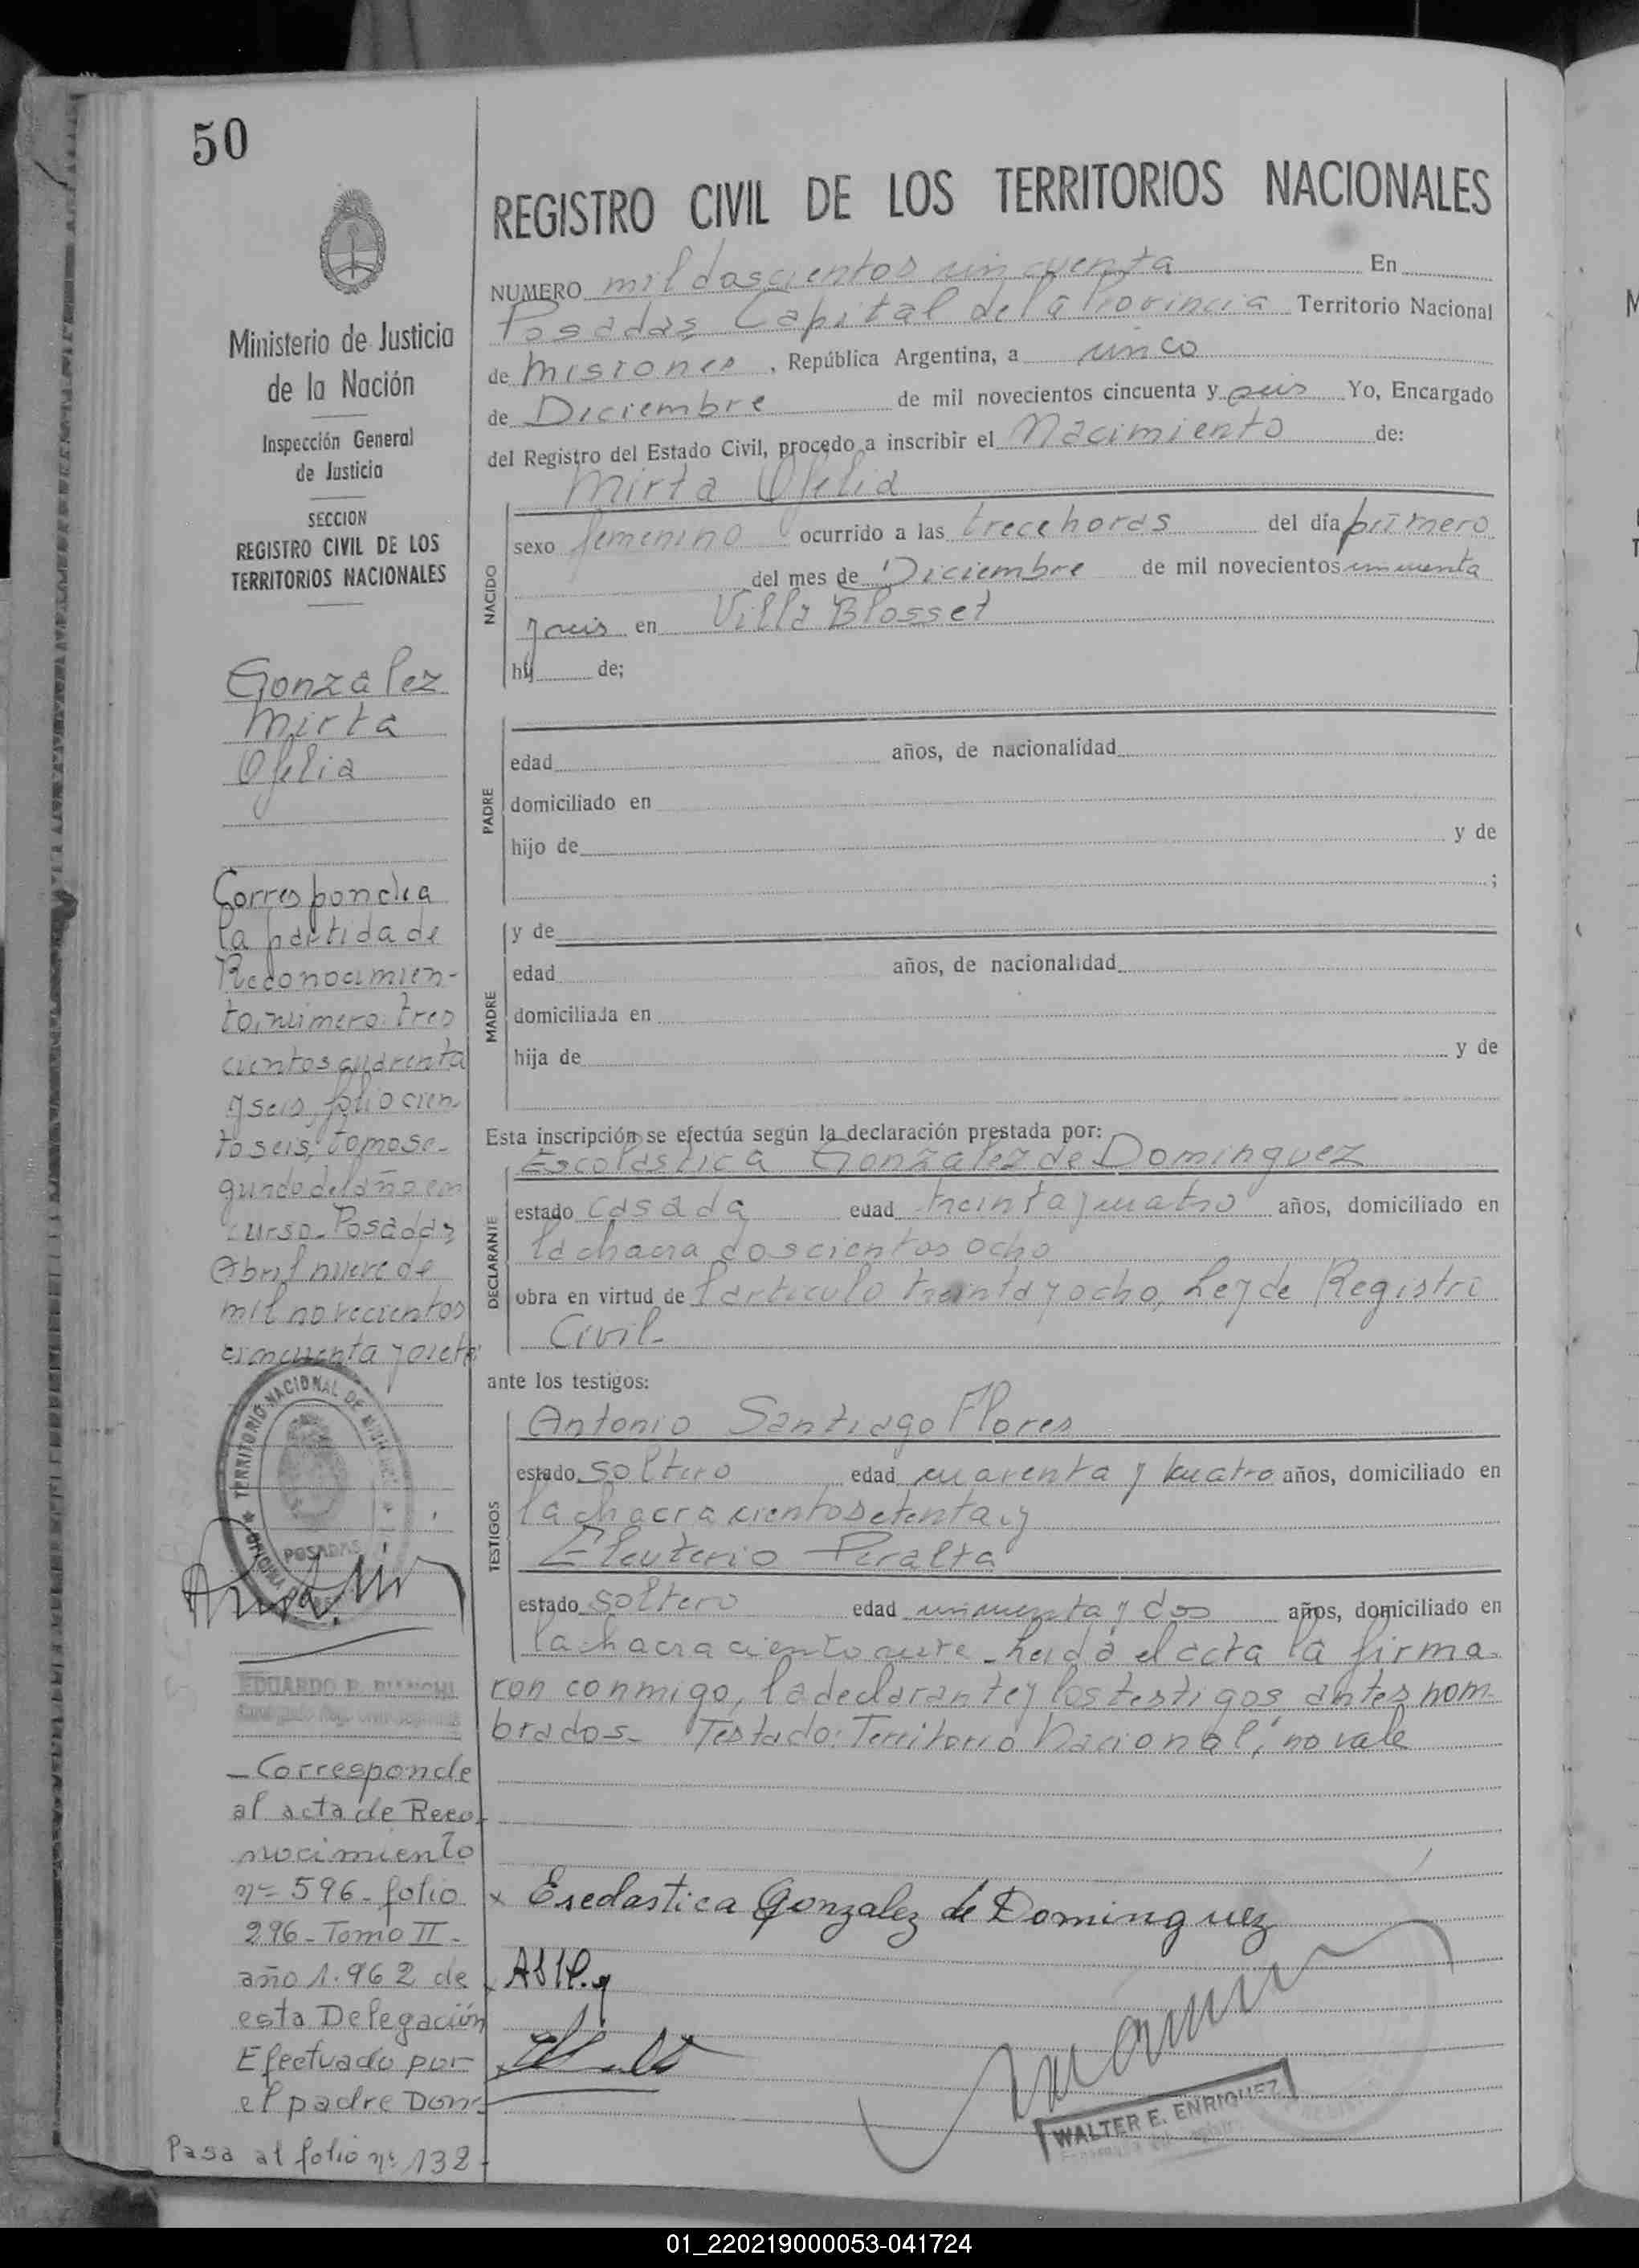 50
Ministerio de Justicia
de la Nación
Inspección General
de Justicia
SECCION
REGISTRO CIVIL DE LOS
TERRITORIOS NACIONALES
Gonzalez
Mirta
Ofelia
Corresponde a
la partida de
Reconocimien-
to, número tres
cientos cuarenta
y seis, folio cien
to seis, tomo se-
gundo del año en
curso. Posadas
Abril nueve de
mil novecientos
cincuenta y siete
TERRITORIO NACIONAL DE MISIONES
OFICINA
POSADAS
EDUARDO R. BIANCHI
- Corresponde
al acta de Reco-
nocimiento
nº 596 - folio
296 - Tomo II -
año 1.962 de
esta Delegación
Efectuado por
el padre Don-
Pasa al folio nº 132-
REGISTRO CIVIL DE LOS TERRITORIOS NACIONALES
NUMERO mil doscientos cincuenta En
Posadas, Capital de la Provincia Territorio Nacional
de Misiones, República Argentina, a cinco
de Diciembre de mil novecientos cincuenta y seis Yo, Encargado
del Registro del Estado Civil, procedo a inscribir el Nacimiento de:
NACIDO
Mirta Ofelia
sexo femenino ocurrido a las trece horas del día primero
del mes de Diciembre de mil novecientos cincuenta
y seis en Villa Blosset
hij de;
PADRE
edad años, de nacionalidad
domiciliado en
hijo de y de
;
MADRE
y de
edad años, de nacionalidad
domiciliada en
hija de y de
Esta inscripción se efectúa según la declaración prestada por:
DECLARANTE
Escolastica Gonzalez de Dominguez
estado casada edad treinta y cuatro años, domiciliado en
la chacra doscientos ocho
obra en virtud de l artículo treinta y ocho, Ley de Registro
Civil-
ante los testigos:
TESTIGOS
Antonio Santiago Flores
estado soltero edad cuarenta y cuatro años, domiciliado en
la chacra ciento setenta y
Eleuterio Peralta
estado soltero edad cincuenta y dos años, domiciliado en
la chacra ciento - Leida el acta la firma-
ron conmigo, la declarante y los testigos antes nom-
brados- Testado: "Territorio Nacional", no vale
x Escolastica Gonzalez de Dominguez
WALTER E. ENRIQUEZ
01_220219000053-041724